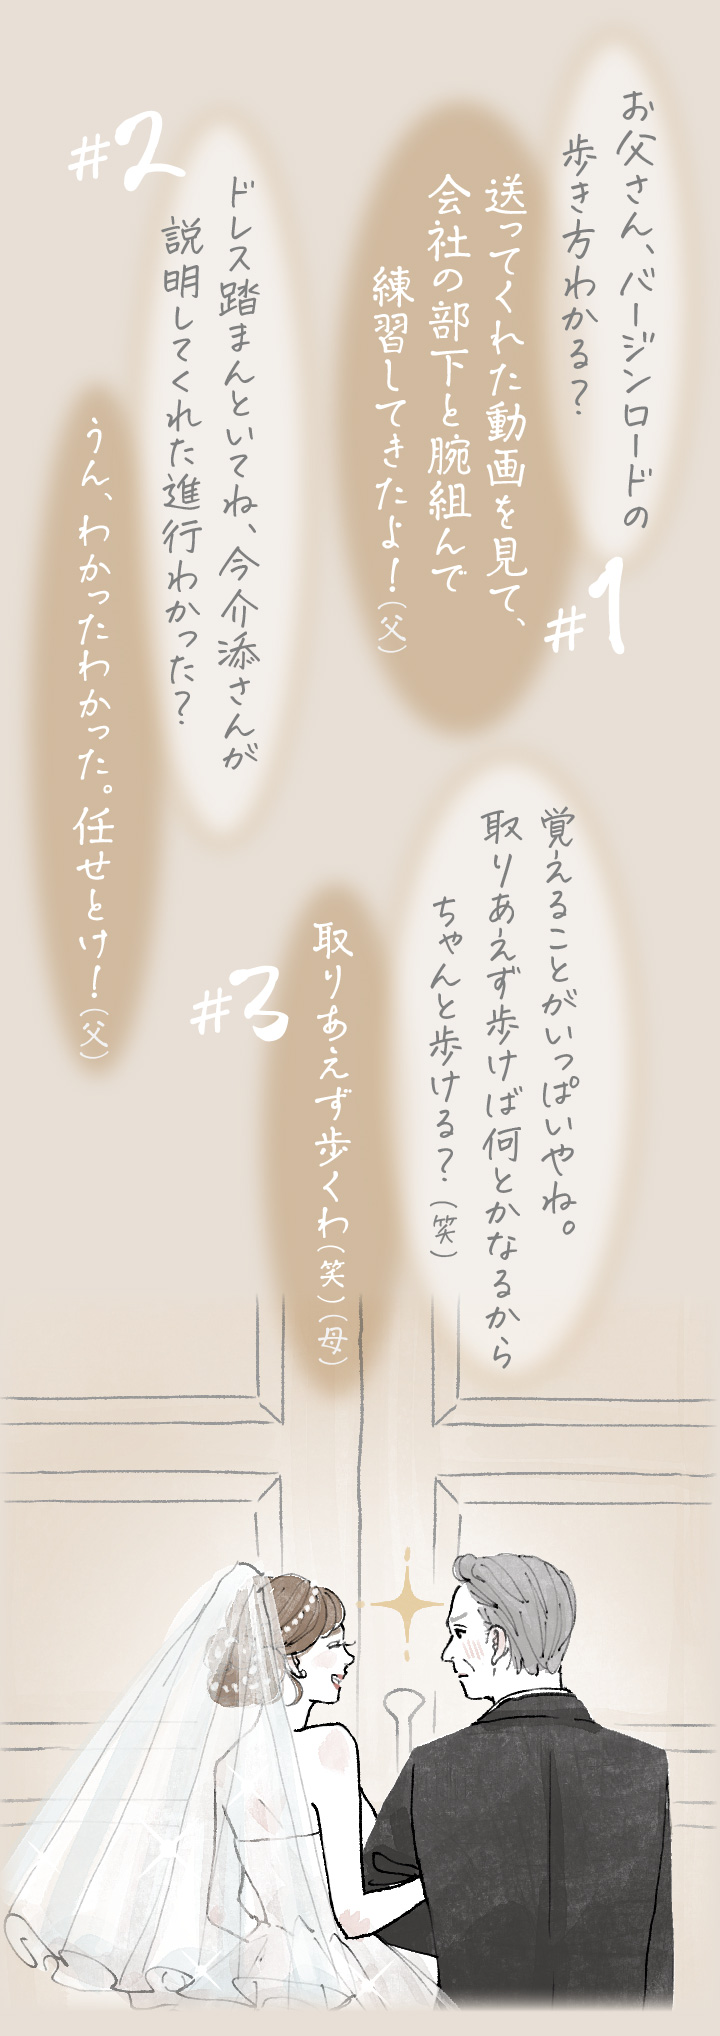 #1
お父さん、バージンロードの
歩き方わかる？
送ってくれた動画を見て、
会社の部下と腕組んで
練習してきたよ！（父）
#2
ドレス踏まんといてね、今介添さんが
説明してくれた進行わかった？
うん、わかったわかった。任せとけ！（父）
#3
覚えることがいっぱいやね。
取りあえず歩けば何とかなるから
ちゃんと歩ける？（笑）
取りあえず歩くわ（笑）（母）